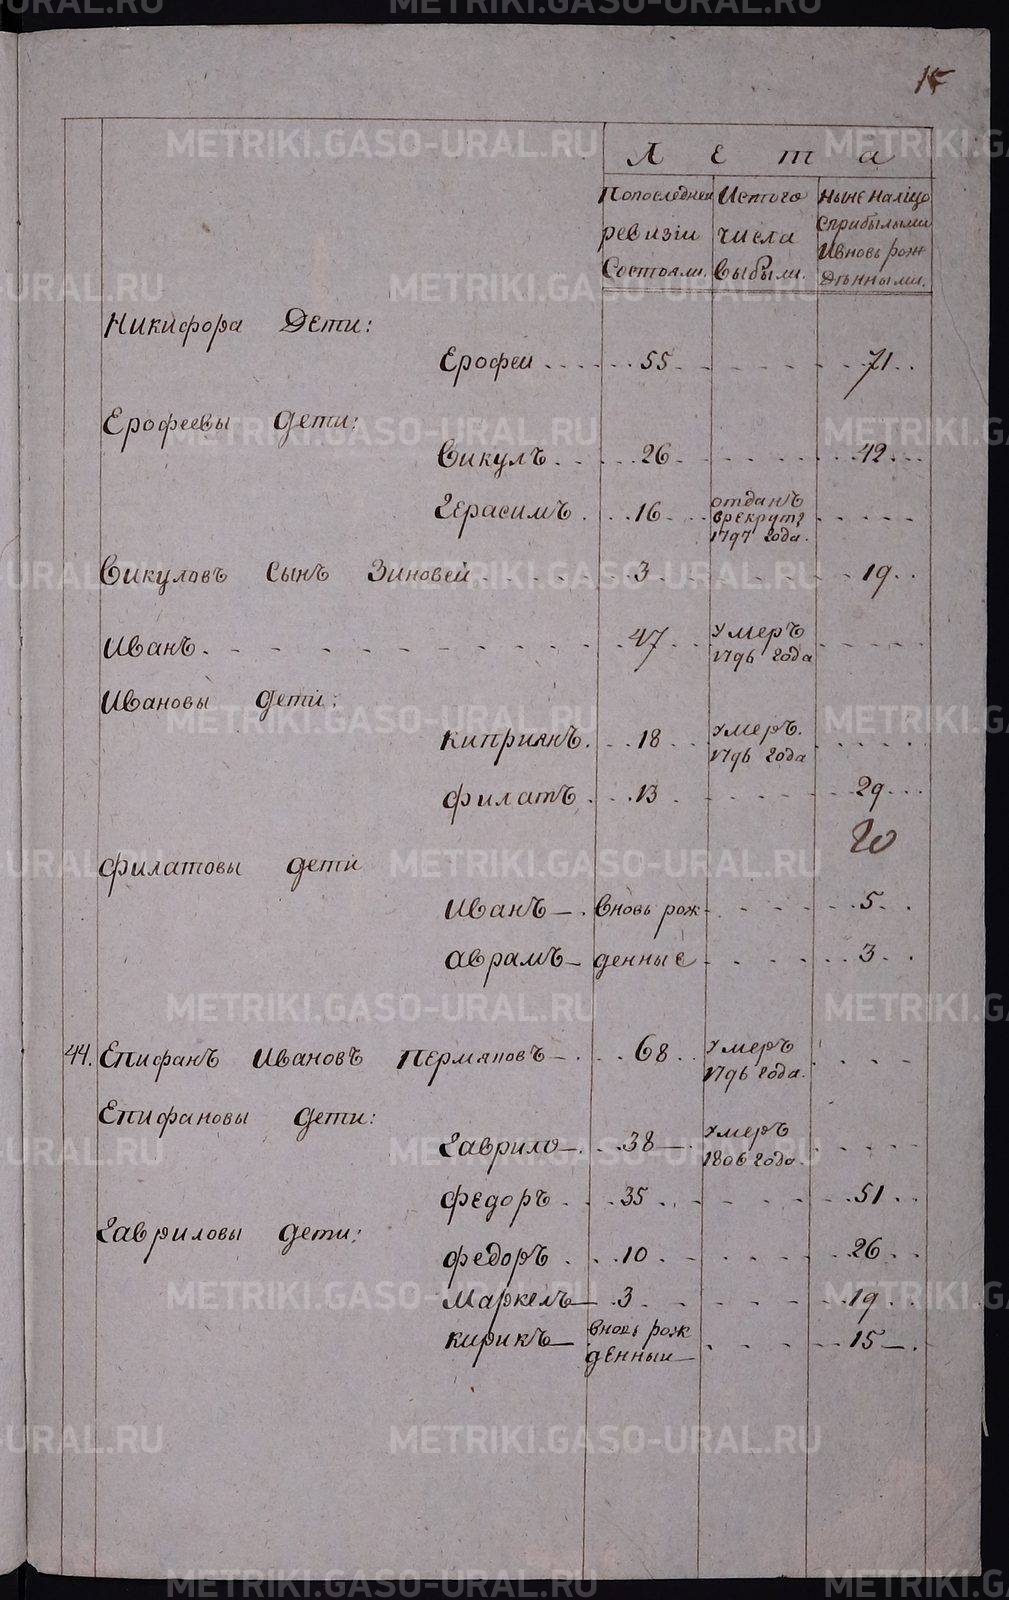 15
Лета
Попоследней ревизiи Состояли.
Истого числа выбыли.
Ныне налицо Сприбылыми Ивновь рож денными.
Никифора Дети:
Ерофеи 55 71
Ерофеевы дети:
Викулъ 26 42
Герасимъ 16 отданъ врекруты 1797 года.
Викуловъ сынъ Зиновей 3 19
Иванъ 47 умеръ 1796 года
Ивановы дети:
Киприянъ 18 умеръ. 1796 года
Филатъ 13 29
20
Филатовы дети
Иванъ вновь рож 5
Аврамъ денные 3
44. Епифанъ Ивановъ Пермяковъ 68 умеръ 1796 года.
Епифановы дети:
Гаврило 38 умеръ 1806 года.
Федоръ 35 51
Гавриловы дети:
Федоръ 10 26
Маркелъ 3 19
Кирикъ вновь рож денныи 15
METRIKI.GASO-URAL.RU